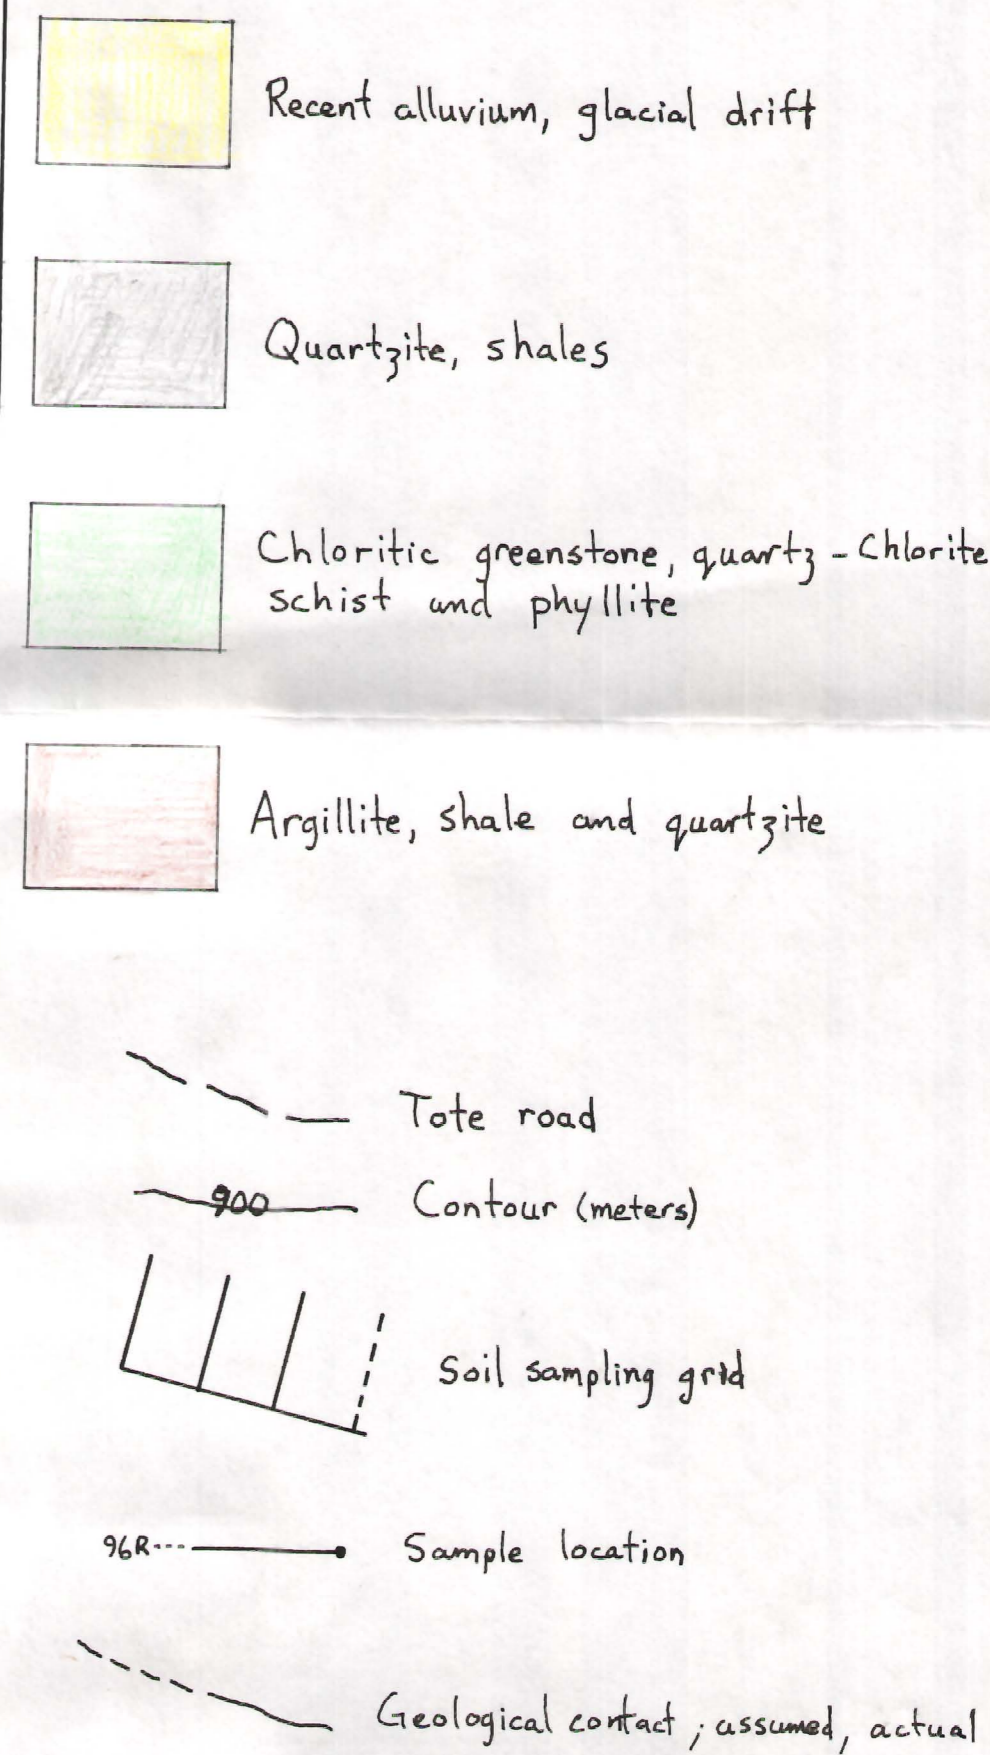 Recent alluvium, glacial drift
Quartzite, shales
Chloritic greenstone, quartz - Chlorite
schist and phyllite
Argillite, shale and quartzite
Tote road
900 Contour (meters)
Soil sampling grid
96R--- Sample location
Geological contact ; assumed, actual